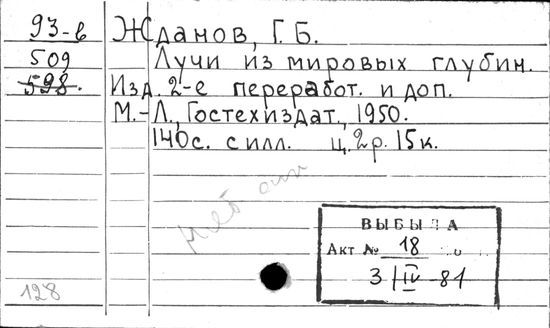 93-в Жданов, Г. Б.
509 Лучи из мировых глубин.
598. Изд. 2-е переработ. и доп.
М.-Л., Гостехиздат, 1950.
140с. с илл. ц. 2р. 15к.
нет
ВЫБЫЛА
Акт № 18
3/IV-81
128